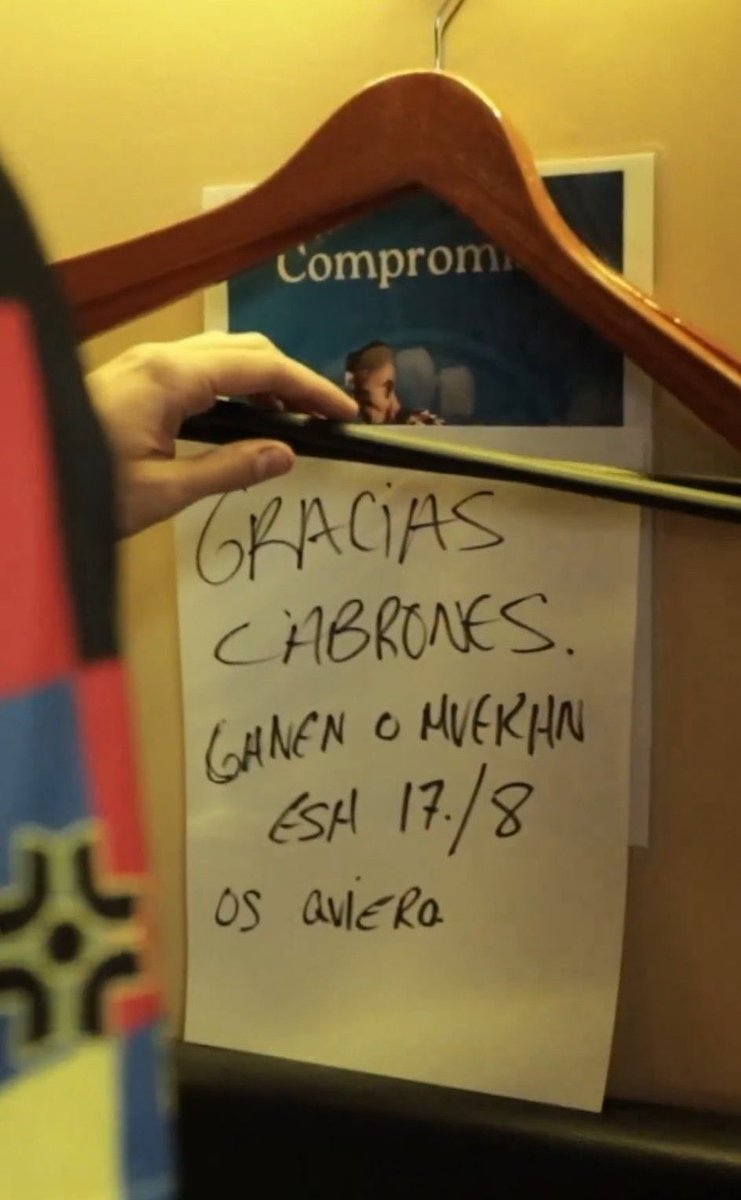 Comprom
GRACIAS
CABRONES.
GANEN O MUERAN
ESA 17./8
OS QUIERO